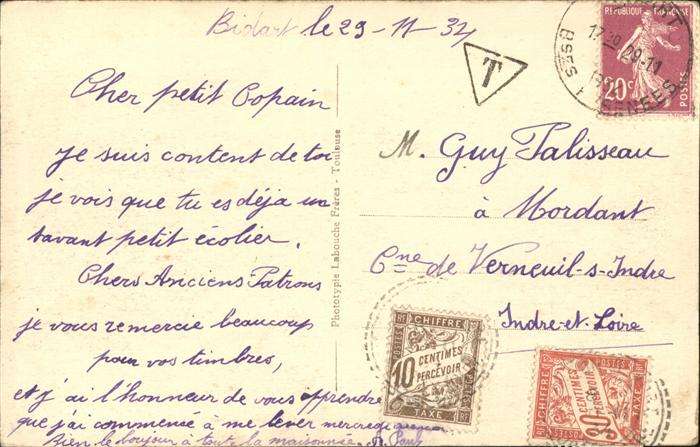 Bidart le 29-11-34
T
RÉPUBLIQUE FRANÇAISE
20c
POSTES
17 29-11
Bses PYRÉNÉES
Cher petit Copain
je suis content de toi
je vois que tu es déja un
savant petit écolier.
Chers Anciens Patrons
je vous remercie beaucoup
pour vos timbres,
et j'ai l'honneur de vous apprendre
que j'ai commencé à me lever mercredi
Bien le bonjour à toute la maisonnée
Phototypie Labouche Frères - Toulouse
M. Guy Palisseau
à Mordant
Cne de Verneuil-s-Indre
Indre-et-Loire
CHIFFRE
10 CENTIMES
À PERCEVOIR
TAXE
POSTES
CHIFFRE
30 CENTIMES
À PERCEVOIR
TAXE